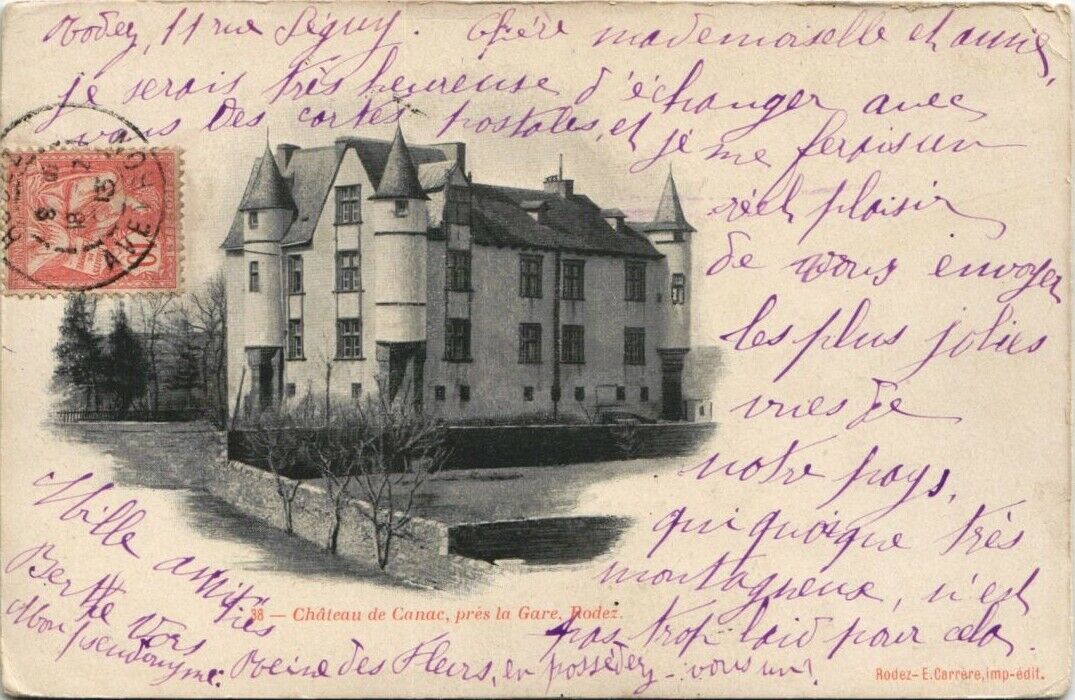 Rodez, 11 rue Séguy. Chère mademoiselle et amie,
je serais très heureuse d'échanger avec
vous des cartes postales, et je me ferais un
réel plaisir
de vous envoyer
les plus jolies
vues de
notre pays,
qui quoique très
montagneux, n'est
pas trop laid pour cela.
Mille amitiés
Berthe Vors
Mon pseudonyme: Reine des Fleurs, en possédez-vous un?
38 — Château de Canac, près la Gare, Rodez.
Rodez - E. Carrère, imp-édit.
AVEYRON